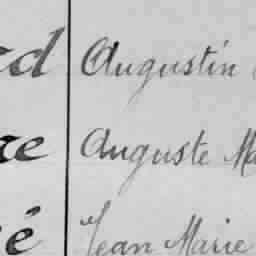 Augustin
Auguste
Jean Marie